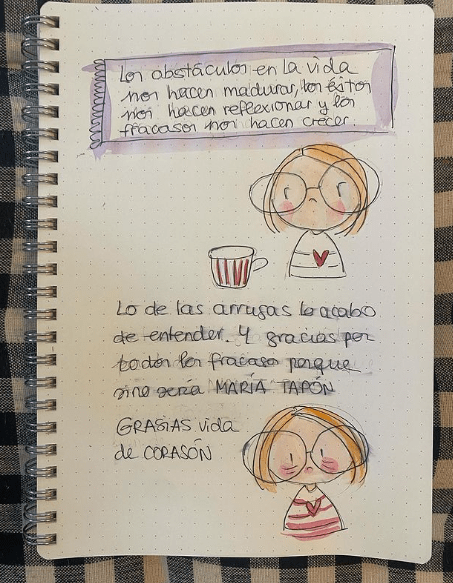 Los obstáculos en la vida
nos hacen madurar, los éxitos
nos hacen reflexionar y los
fracasos nos hacen crecer.
Lo de las arrugas lo acabo
de entender. Y gracias por
todos los fracaso porque
sino sería MARÍA TAPÓN
GRASIAS vida
de CORASÓN